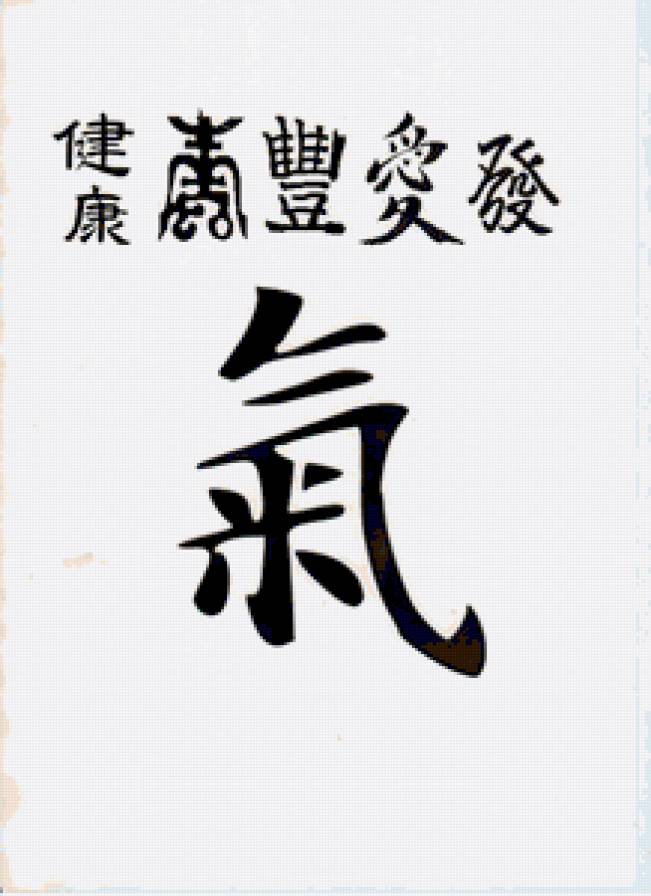 健康 壽 豐 愛 發
氣